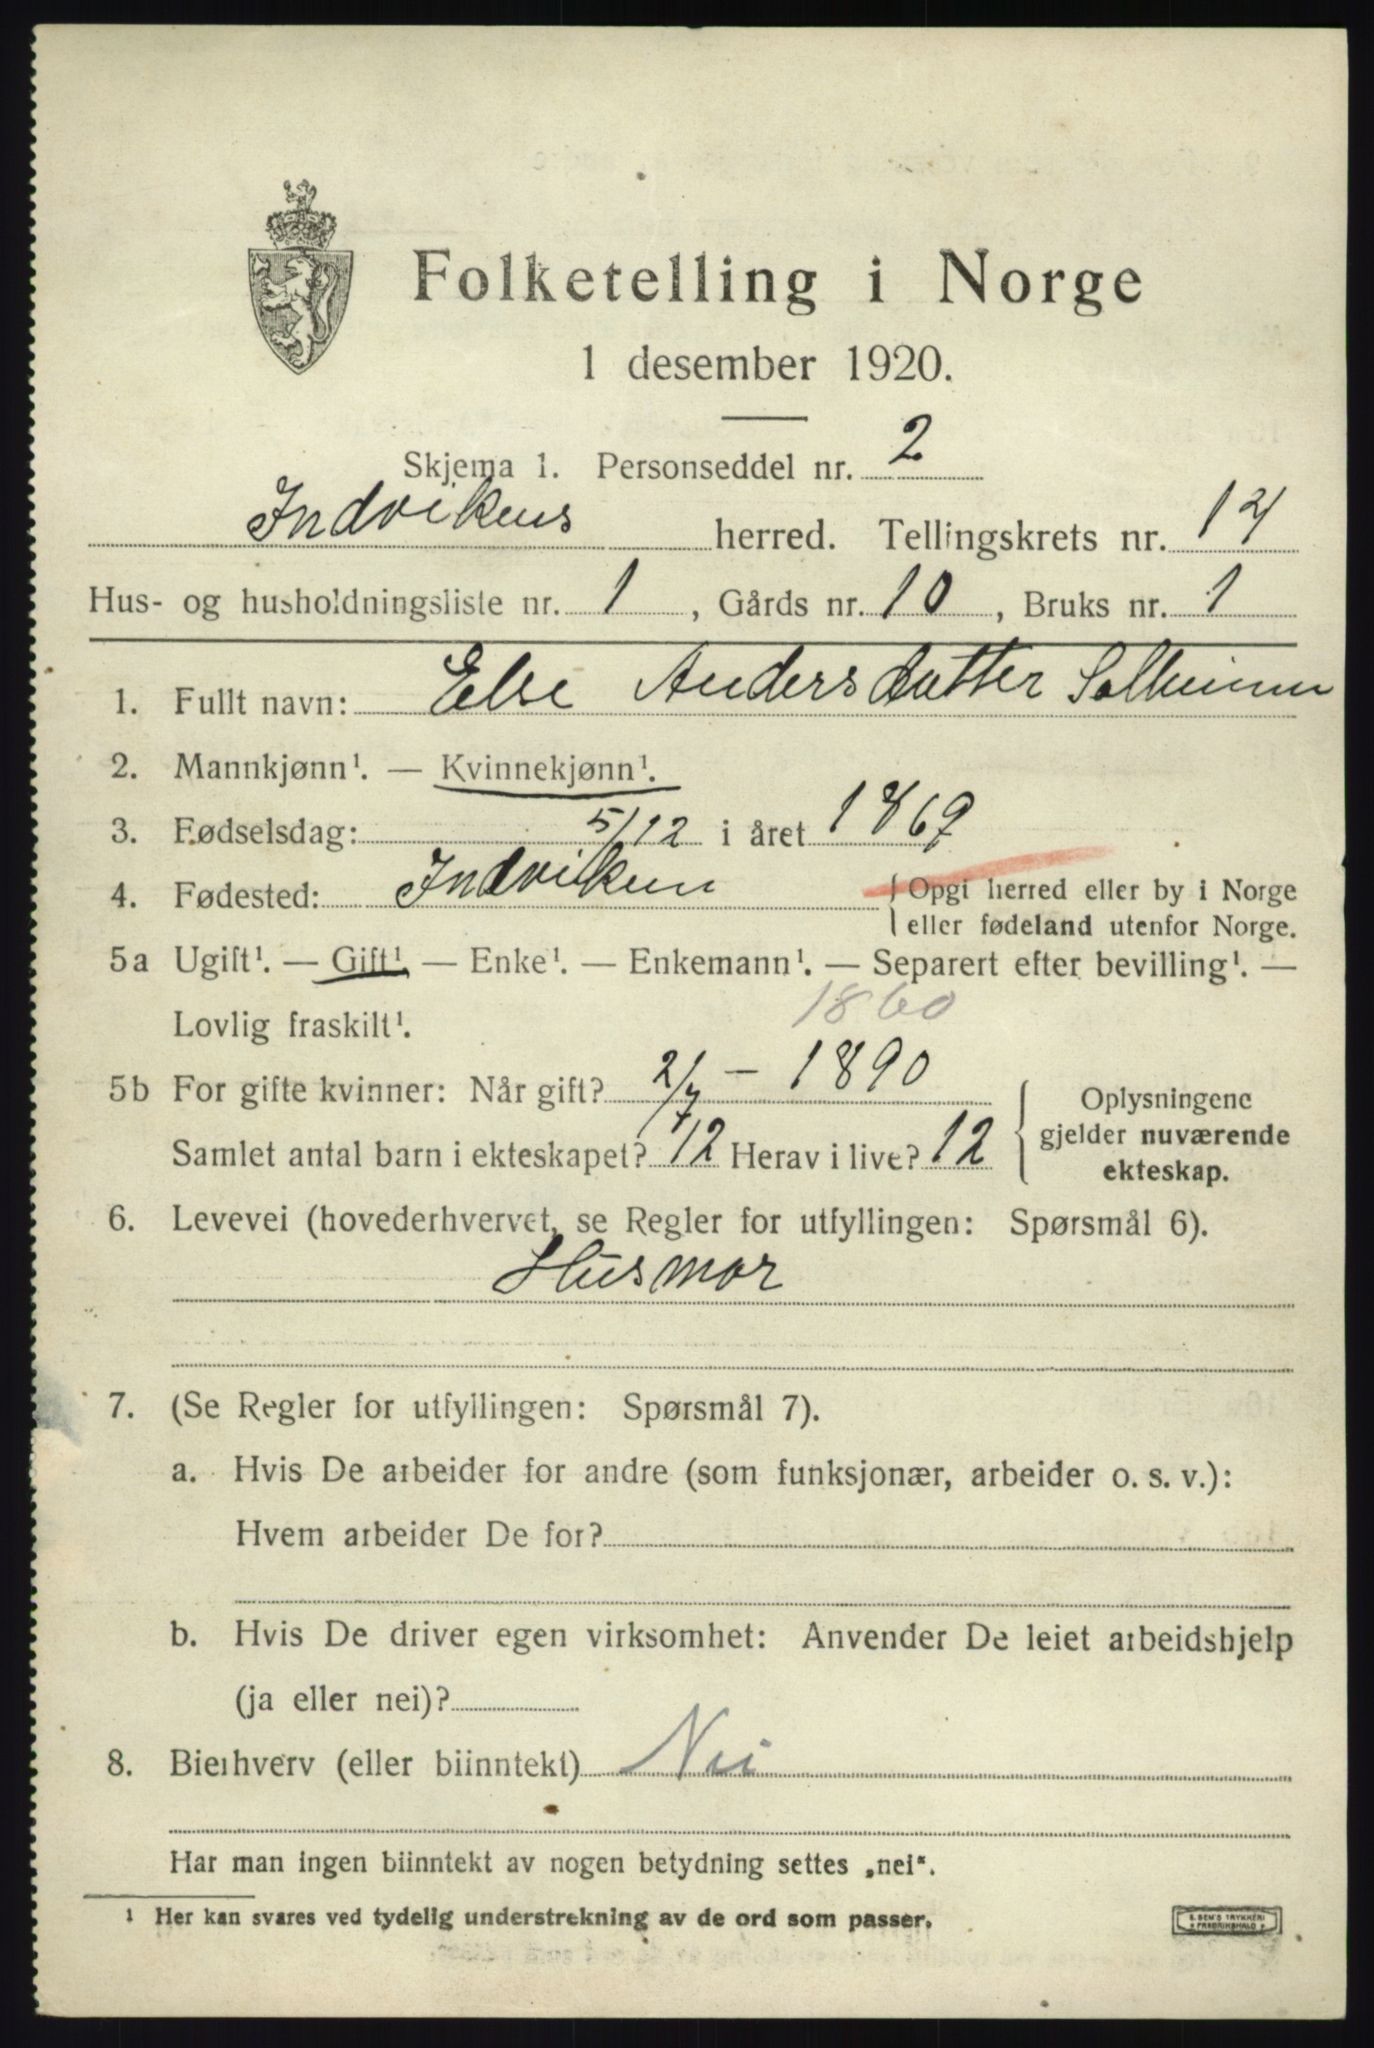 Folketelling i Norge
1 desember 1920.
Skjema 1. Personseddel nr. 2
Indvikens herred. Tellingskrets nr. 12
Hus- og husholdningsliste nr. 1, Gårds nr. 10, Bruks nr. 1
1. Fullt navn: Else Andersdatter Solheimen
2. Mannkjønn¹. — Kvinnekjønn¹.
3. Fødselsdag: 5/12 i året 1869
4. Fødested: Indviken { Opgi herred eller by i Norge
eller fødeland utenfor Norge.
5a Ugift¹. — Gift¹. — Enke¹. — Enkemann¹. — Separert efter bevilling¹. —
Lovlig fraskilt¹. 1860
5b For gifte kvinner: Når gift? 2/7 – 1890
Samlet antal barn i ekteskapet? 12 Herav i live? 12
Oplysningene
gjelder nuværende
ekteskap.
6. Levevei (hovederhvervet, se Regler for utfyllingen: Spørsmål 6).
Husmor
7. (Se Regler for utfyllingen: Spørsmål 7).
a. Hvis De arbeider for andre (som funksjonær, arbeider o. s. v.):
Hvem arbeider De for?
b. Hvis De driver egen virksomhet: Anvender De leiet arbeidshjelp
(ja eller nei)?
8. Bierhverv (eller biinntekt) Nei
Har man ingen biinntekt av nogen betydning settes „nei“.
¹ Her kan svares ved tydelig understrekning av de ord som passer.
E. SEM'S TRYKKERI
FREDRIKSHALD